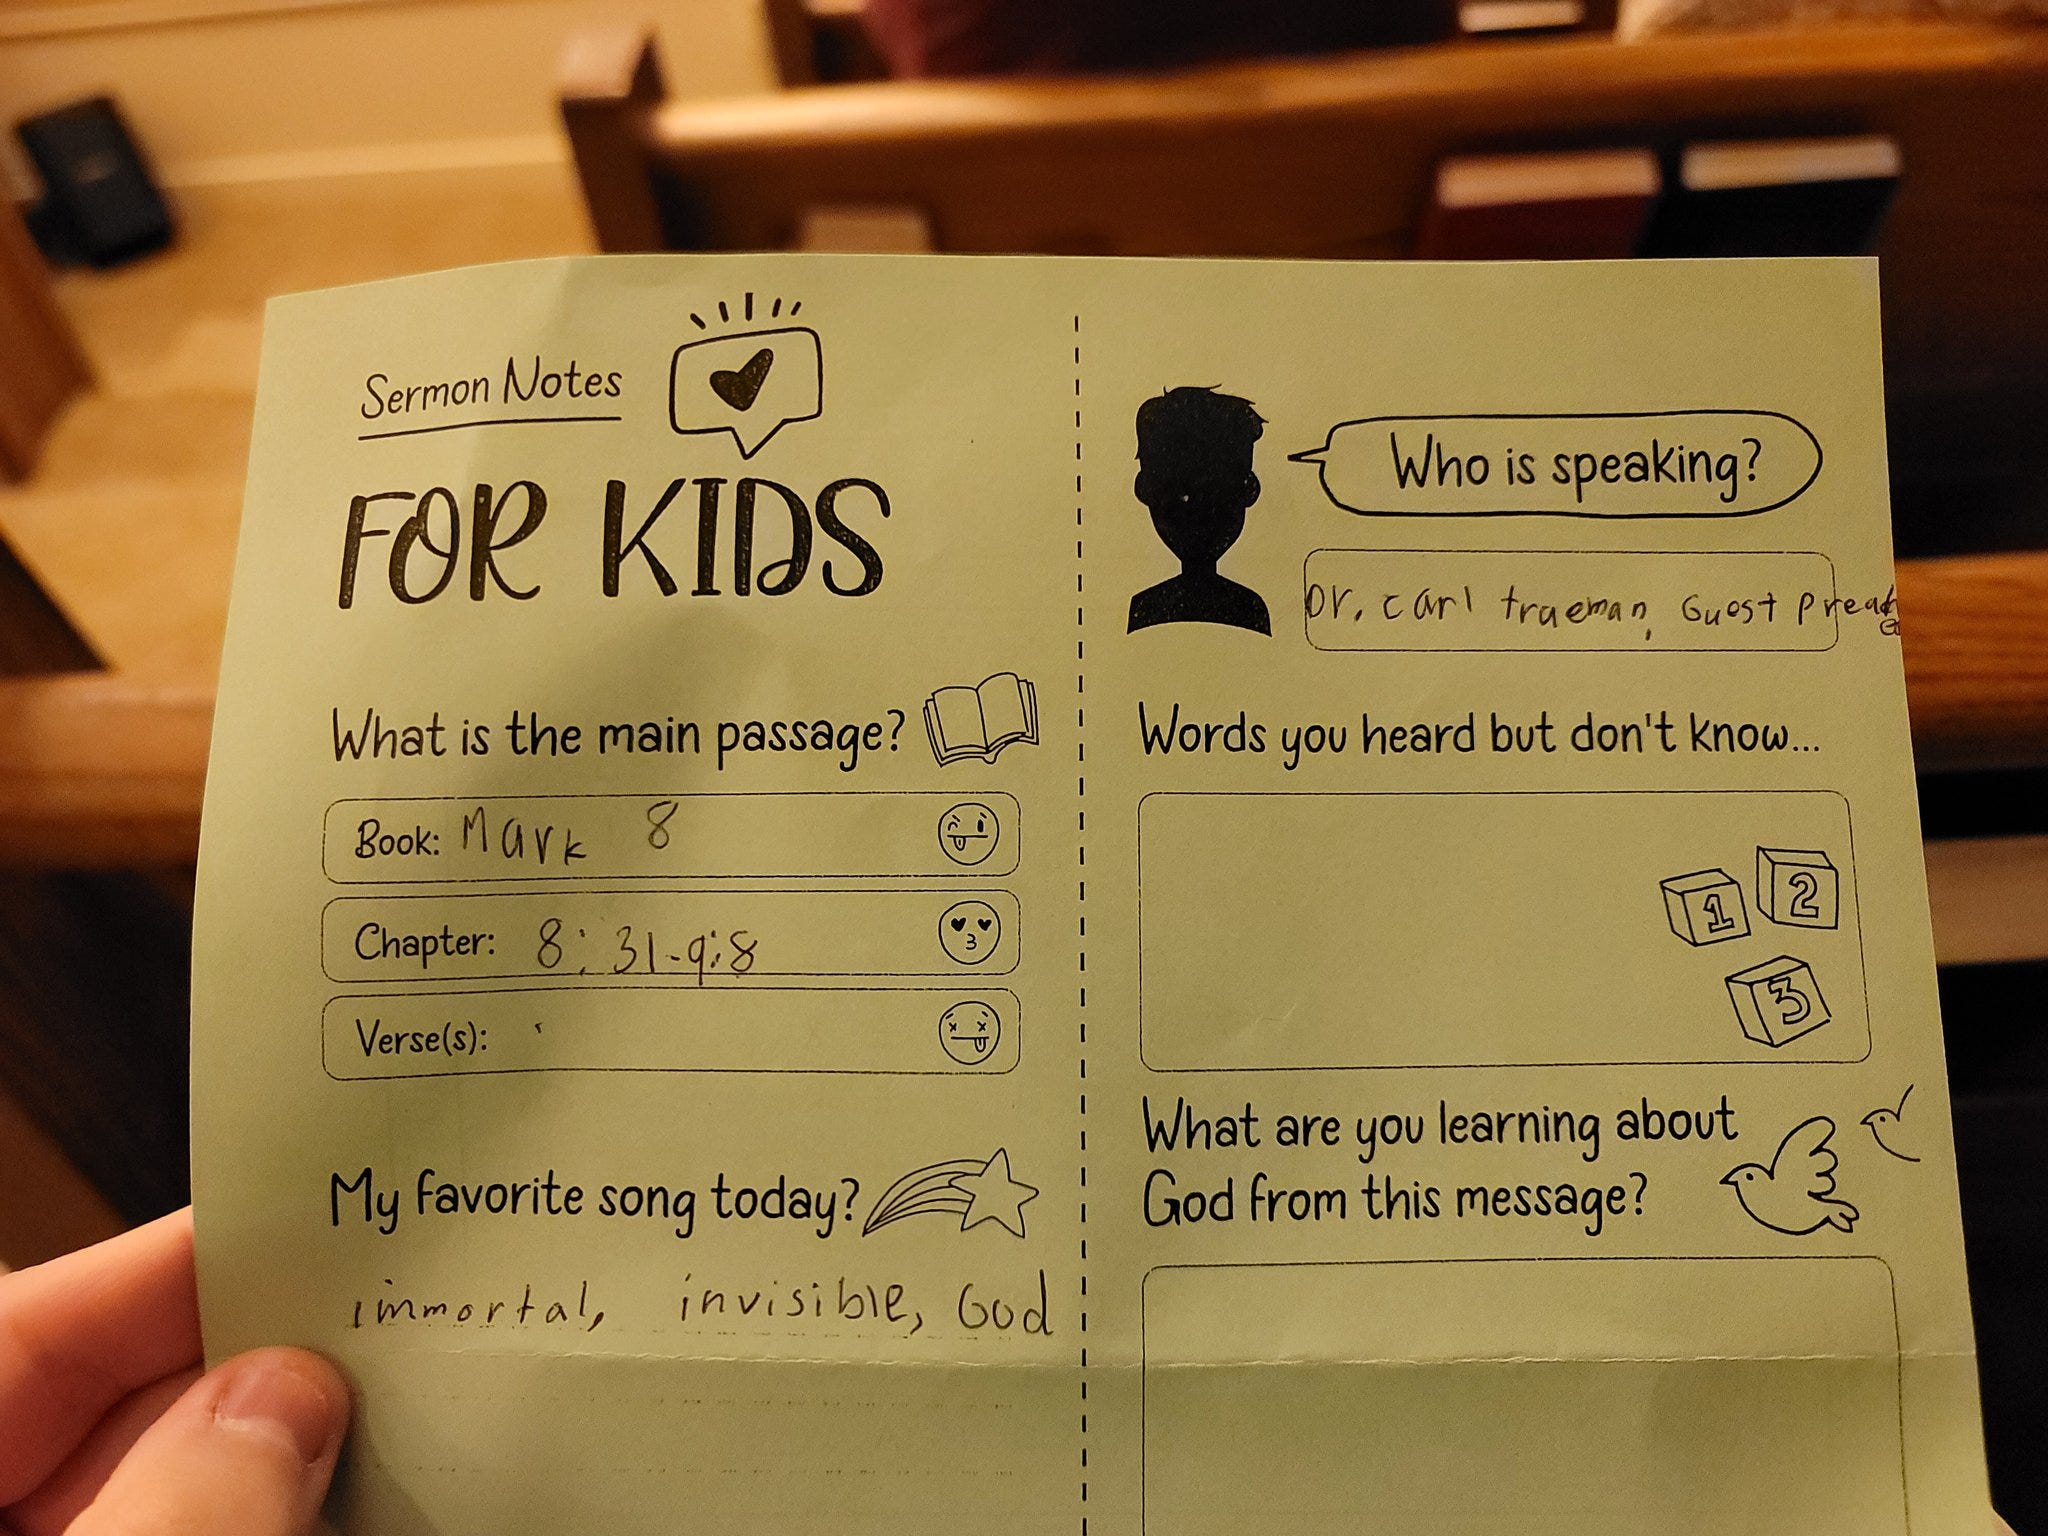 Sermon Notes
FOR KIDS
What is the main passage?
Book: Mark 8
Chapter: 8:31-9:8
Verse(s):
My favorite song today?
immortal, invisible, God
Who is speaking?
Dr. carl trueman, Guest Preacher
Words you heard but don't know...
1 2
3
What are you learning about
God from this message?